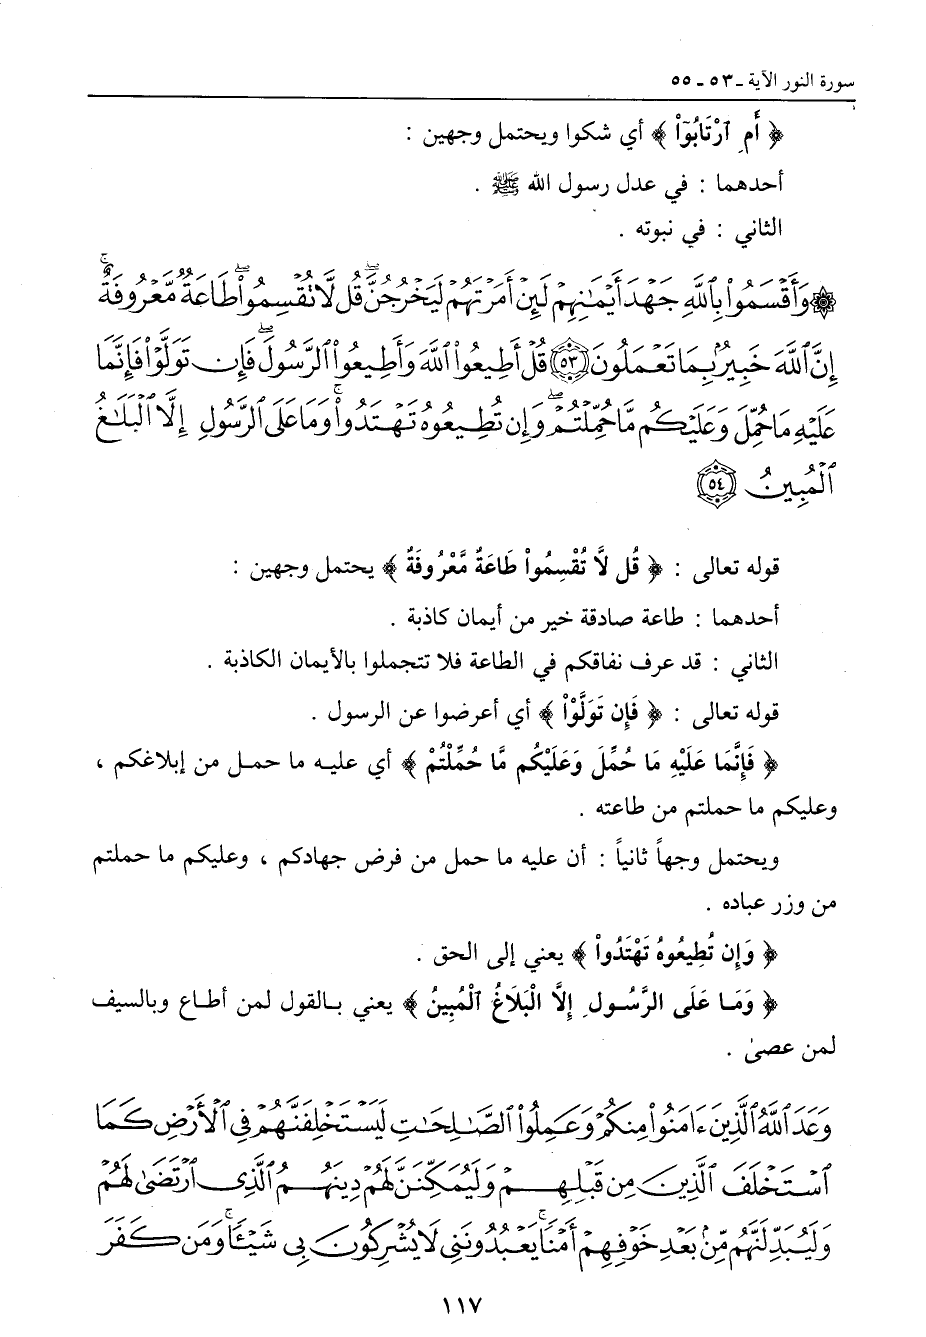 سورة النور الآية ـ ٥٣ ـ ٥٥
﴿ أَمِ ارْتَابُوٓاْ ﴾ أي شكوا ويحتمل وجهين :
أحدهما : في عدل رسول الله ﷺ .
الثاني : في نبوته .
۞ وَأَقْسَمُواْ بِٱللَّهِ جَهْدَ أَيْمَٰنِهِمْ لَئِنْ أَمَرْتَهُمْ لَيَخْرُجُنَّۖ قُل لَّا تُقْسِمُواْۖ طَاعَةٌ مَّعْرُوفَةٌۚ
إِنَّ ٱللَّهَ خَبِيرٌۢ بِمَا تَعْمَلُونَ ﴿٥٣﴾ قُلْ أَطِيعُواْ ٱللَّهَ وَأَطِيعُواْ ٱلرَّسُولَۖ فَإِن تَوَلَّوْاْ فَإِنَّمَا
عَلَيْهِ مَا حُمِّلَ وَعَلَيْكُم مَّا حُمِّلْتُمْۖ وَإِن تُطِيعُوهُ تَهْتَدُواْۚ وَمَا عَلَى ٱلرَّسُولِ إِلَّا ٱلْبَلَٰغُ
ٱلْمُبِينُ ﴿٥٤﴾
قوله تعالى : ﴿ قُل لَّا تُقْسِمُواْ طَاعَةٌ مَّعْرُوفَةٌ ﴾ يحتمل وجهين :
أحدهما : طاعة صادقة خير من أيمان كاذبة .
الثاني : قد عرف نفاقكم في الطاعة فلا تتجملوا بالأيمان الكاذبة .
قوله تعالى : ﴿ فَإِن تَوَلَّوْاْ ﴾ أي أعرضوا عن الرسول .
﴿ فَإِنَّمَا عَلَيْهِ مَا حُمِّلَ وَعَلَيْكُم مَّا حُمِّلْتُمْ ﴾ أي عليه ما حمل من إبلاغكم ،
وعليكم ما حملتم من طاعته .
ويحتمل وجهاً ثانياً : أن عليه ما حمل من فرض جهادكم ، وعليكم ما حملتم
من وزر عباده .
﴿ وَإِن تُطِيعُوهُ تَهْتَدُواْ ﴾ يعني إلى الحق .
﴿ وَمَا عَلَى الرَّسُولِ إِلَّا الْبَلَاغُ الْمُبِينُ ﴾ يعني بالقول لمن أطاع وبالسيف
لمن عصىٰ .
وَعَدَ ٱللَّهُ ٱلَّذِينَ ءَامَنُواْ مِنكُمْ وَعَمِلُواْ ٱلصَّٰلِحَٰتِ لَيَسْتَخْلِفَنَّهُمْ فِي ٱلْأَرْضِ كَمَا
ٱسْتَخْلَفَ ٱلَّذِينَ مِن قَبْلِهِمْ وَلَيُمَكِّنَنَّ لَهُمْ دِينَهُمُ ٱلَّذِي ٱرْتَضَىٰ لَهُمْ
وَلَيُبَدِّلَنَّهُم مِّنۢ بَعْدِ خَوْفِهِمْ أَمْنًاۚ يَعْبُدُونَنِي لَا يُشْرِكُونَ بِي شَيْـًٔاۚ وَمَن كَفَرَ
١١٧